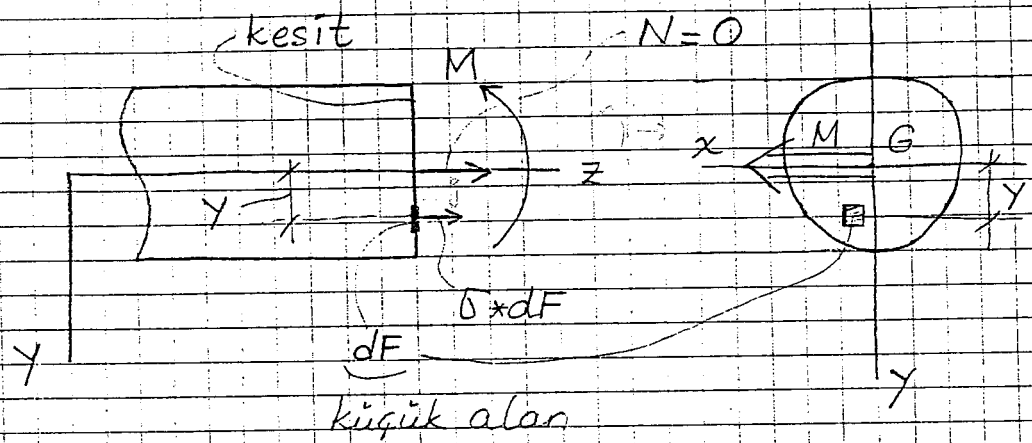 kesit
N=0
M
x
M
G
z
y
y
σ*dF
dF
y
y
küçük alan